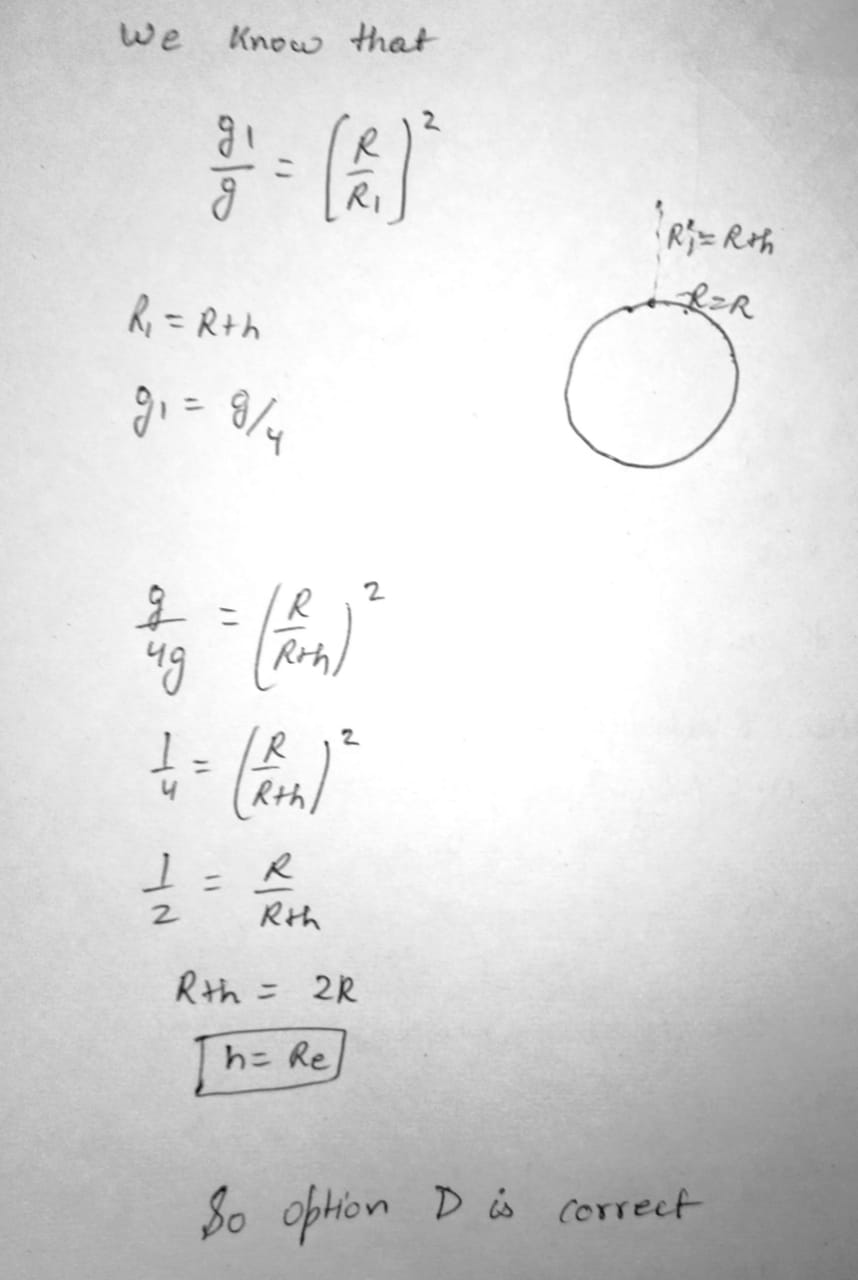 We Know that
g1/g = [R/R1]²
R1 = R+h
R=R
R1 = R+h
g1 = g/4
g/4g = (R/R+h)²
1/4 = (R/R+h)²
1/2 = R/R+h
R+h = 2R
h = Re
So option D is correct